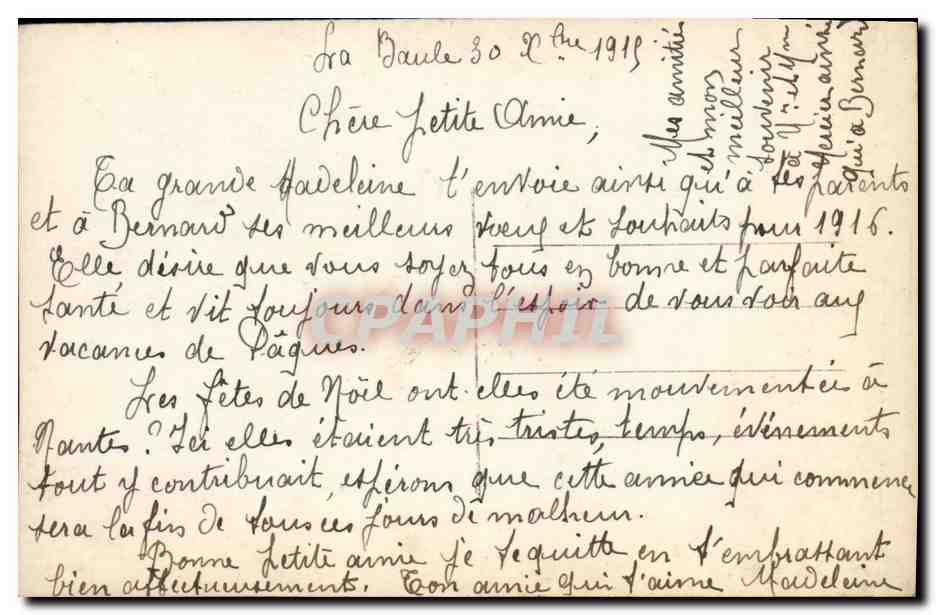 La Baule 30 Xbre 1915
Chère petite Amie,
Ta grande Madeleine t'envoie ainsi qu'à tes parents
et à Bernard ses meilleurs vœux et souhaits pour 1916.
Elle désire que vous soyez tous en bonne et parfaite
santé et vit toujours dans l'espoir de vous voir aux
vacances de Pâques.
Les fêtes de Noël ont-elles été mouvementées à
Nantes? Ici elles étaient très tristes, temps, événements
tout y contribuait, espérons que cette année qui commence
sera la fin de tous ces jours de malheur.
Bonne petite amie je te quitte en t'embrassant
bien affectueusement. Ton amie qui t'aime Madeleine
Mes amitiés
et mon
meilleur
souvenir
à Yv et Ym
Mercier ainsi
qu'à Bernard
CPAPHIL